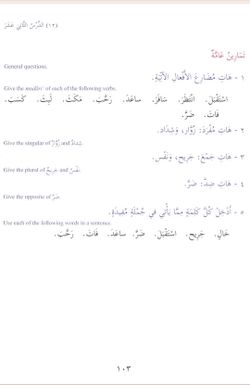 (١٢) الدَّرْسُ الثَّانِي عَشَرَ
تَمَارِينُ عَامَّةٌ
General questions.
١ - هَاتِ مُضَارِعَ الأَفْعَالِ الآتِيَةِ.
Give the muḍāriʿ of each of the following verbs.
اسْتَقْبَلَ. انْتَظَرَ. سَافَرَ. سَاعَدَ. رَحَّبَ. مَكَثَ. لَبِثَ. كَسَبَ.
فَاتَ. ضَرَّ.
٢ - هَاتِ مُفْرَدَ: زُوَّار، وَشِدَاد.
Give the singular of زُوَّارٌ and شِدَادٌ.
٣ - هَاتِ جَمْعَ: جَرِيح، وَنَفْس.
Give the plural of جَرِيحٌ and نَفْسٌ.
٤ - هَاتِ ضِدَّ: ضَرَّ.
Give the opposite of ضَرَّ.
٥ - أَدْخِلْ كُلَّ كَلِمَةٍ مِمَّا يَأْتِي فِي جُمْلَةٍ مُفِيدَةٍ.
Use each of the following words in a sentence.
خَالٍ. جَرِيح. اسْتَقْبَلَ. ضَرَّ. سَاعَدَ. فَاتَ. رَحَّبَ.
١٠٣